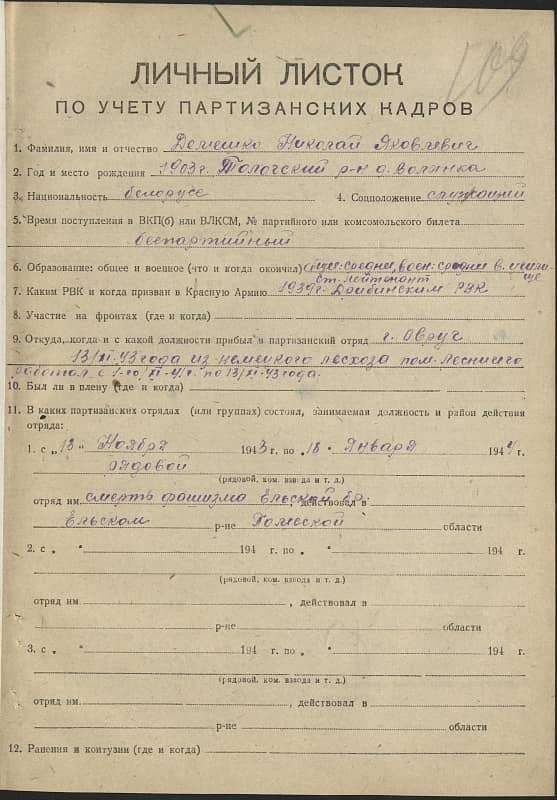 109
ЛИЧНЫЙ ЛИСТОК
ПО УЧЕТУ ПАРТИЗАНСКИХ КАДРОВ
1. Фамилия, имя и отчество Демешко Николай Яковлевич
2. Год и место рождения 1903 г. Толочский р-н д. Волянка
3. Национальность белорусс 4. Соцположение служащий
5. Время поступления в ВКП(б) или ВЛКСМ, № партийного или комсомольского билета
беспартийный
6. Образование: общее и военное (что и когда окончил) общ: средн, воен: средни в. училище
ст. лейтенант
7. Каким РВК и когда призван в Красную Армию 1939 г. РВК
8. Участие на фронтах (где и когда)
9. Откуда, когда и с какой должности прибыл в партизанский отряд г. Овруч
13/XI-43 года из немецкого лесхоза пом. Лесничего
работал с 1-го/XI-41 г. по 13/XI-43 года.
10. Был ли в плену (где и когда)
11. В каких партизанских отрядах (или группах) состоял, занимаемая должность и район действия
отряда:
1. с „13" Ноября 1943 г. по „18" Января 1944 г.
рядовой
(рядовой, ком. взвода и т. д.)
отряд им. смерть фашизма Ельской бр. действовал в
Ельском р-не Полесской области
2. с „ " 194 г. по „ " 194 г.
(рядовой, ком. взвода и т. д.)
отряд им , действовал в
р-не области
3. с „ " 194 г. по „ " 194 г.
(рядовой, ком. взвода и т. д.)
отряд им , действовал в
р-не области
12. Ранения и контузии (где и когда)